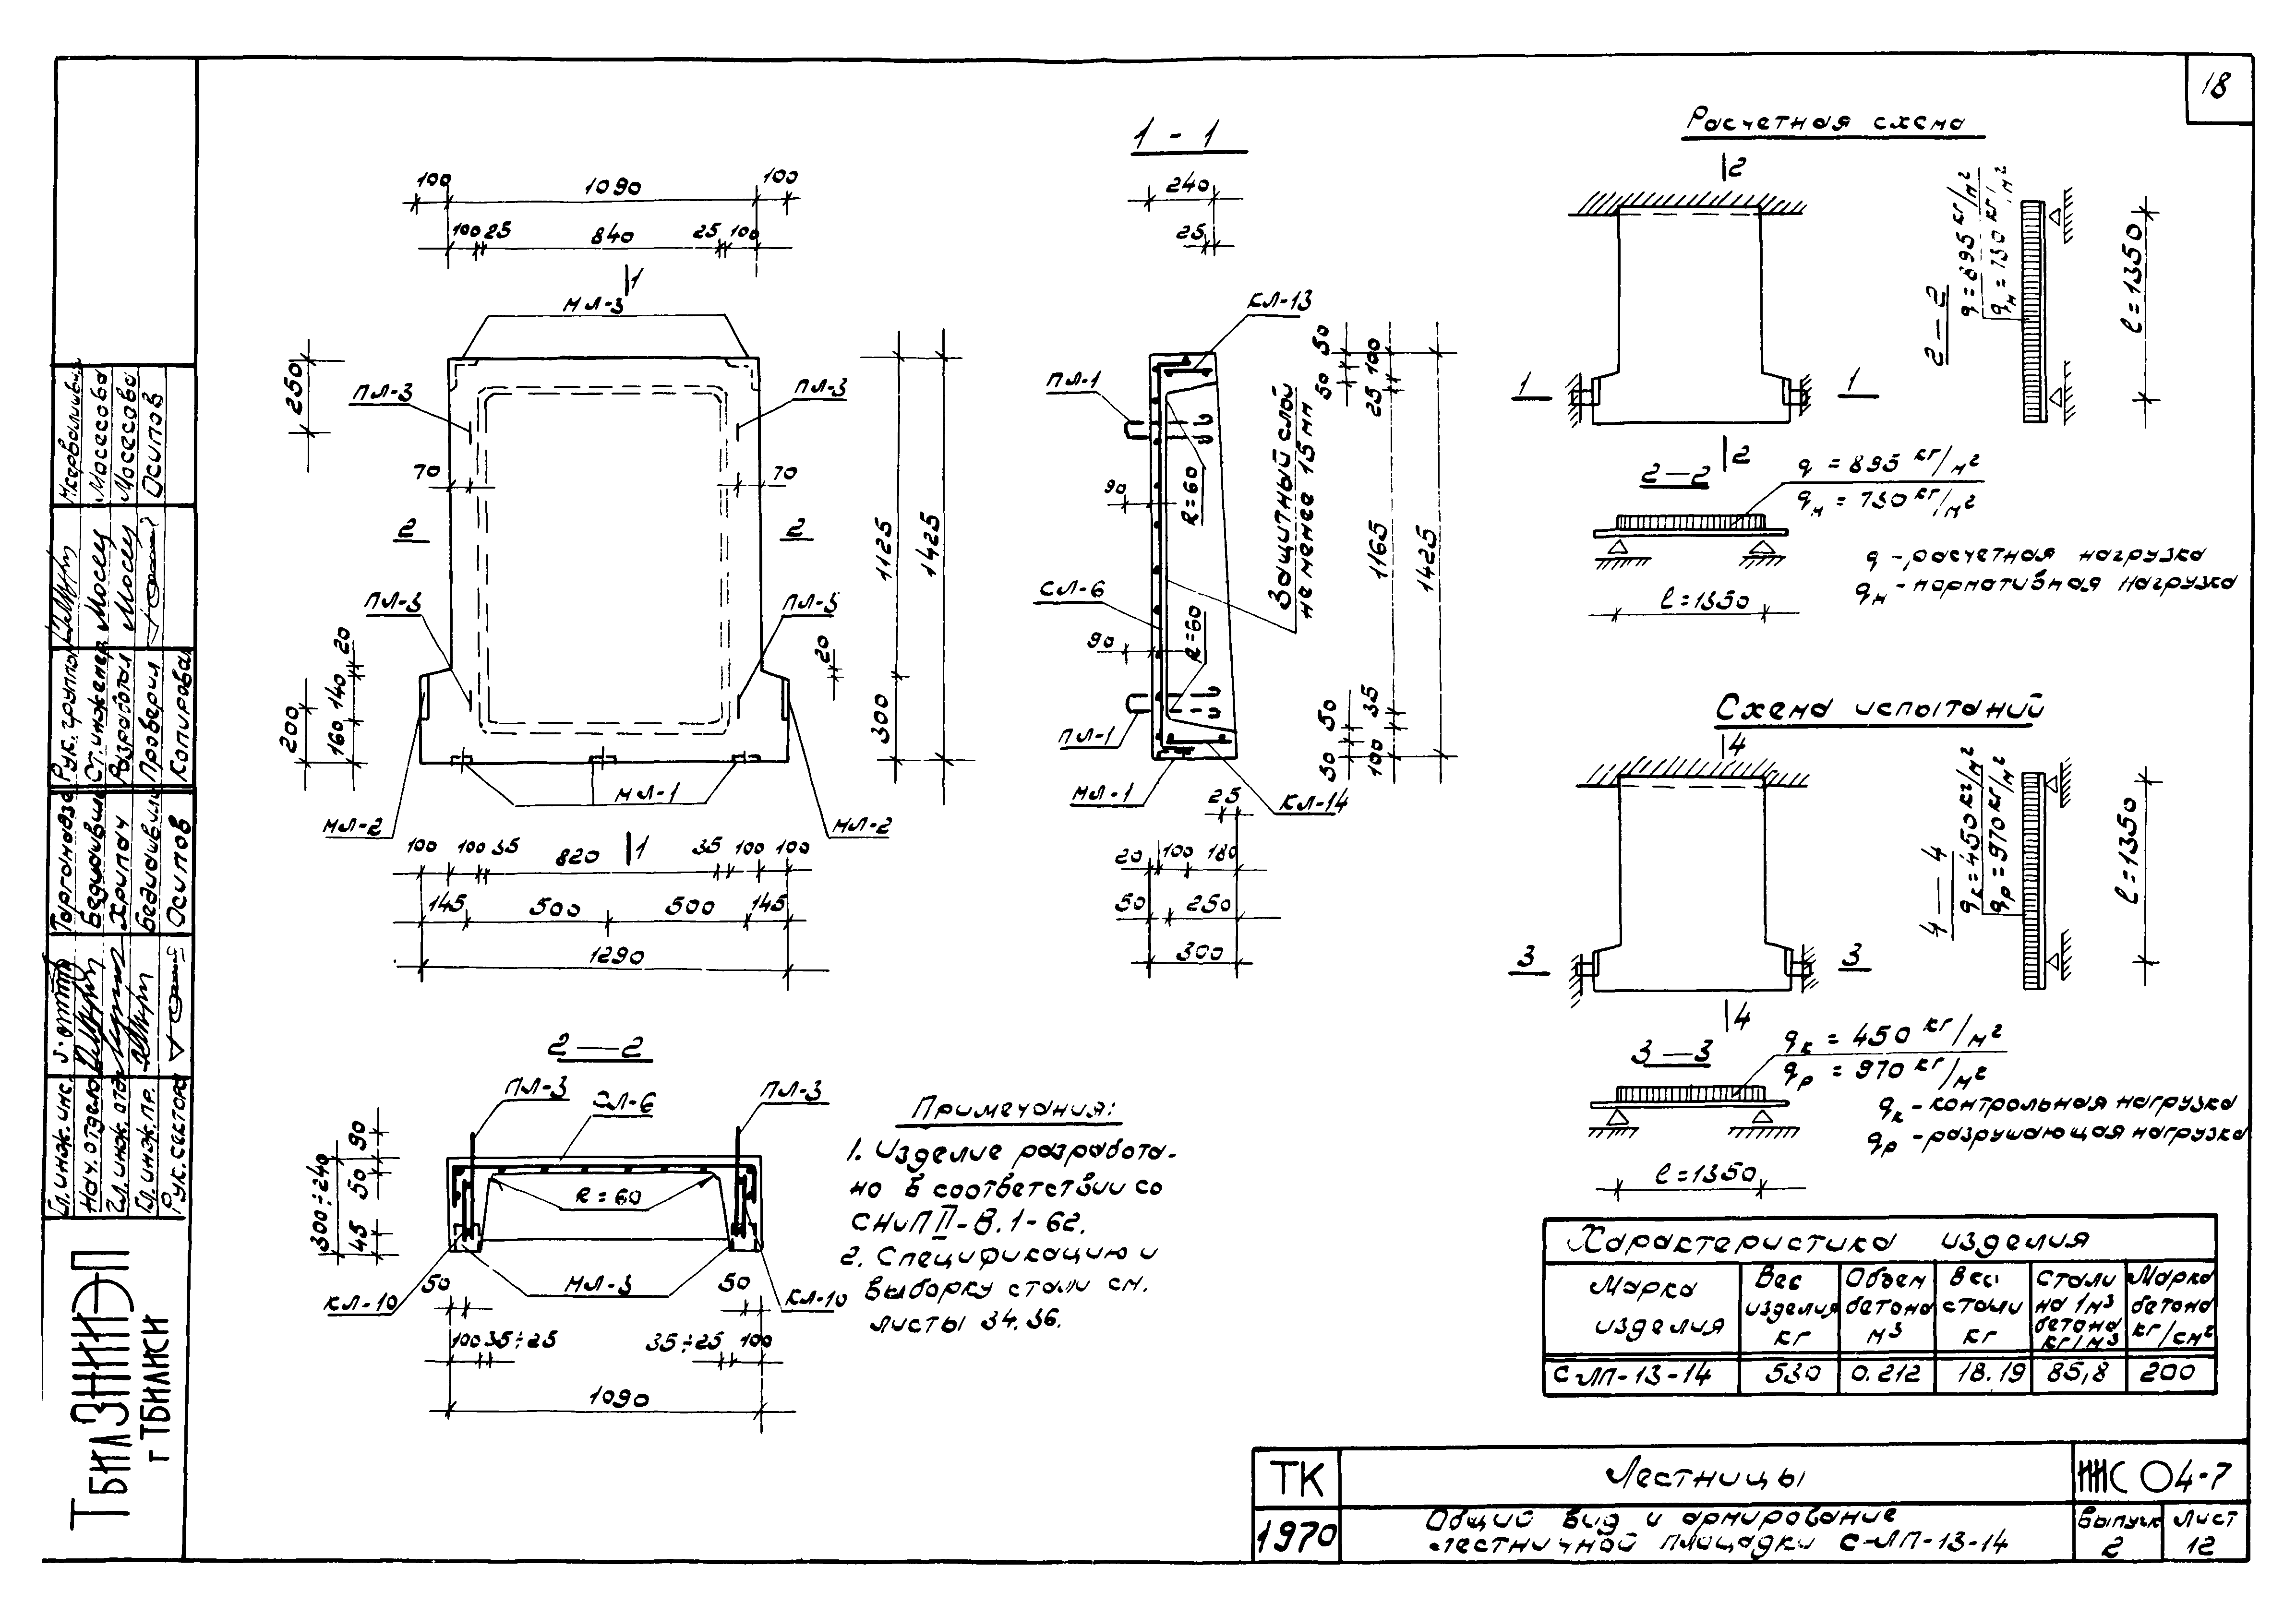 18
1 - 1
Расчетная схема
100 1090 100
100 25 840 25 100
1
МЛ-3
250
ПЛ-3
ПЛ-3
70
70
2
2
ПЛ-3
ПЛ-3
1125
1425
300
20
20
140
160
200
МЛ-1
МЛ-2
МЛ-2
1
100 100 35 820 35 100 100
145 500 500 145
1290
240
25
КЛ-13
ПЛ-1
90
R=60
Защитный слой
не менее 15 мм
СЛ-6
90
R=60
ПЛ-1
МЛ-1
КЛ-14
50
50
100
25
1165
1425
50
35
50
100
25
20 100 180
50 250
300
2
1
1
2
2—2
q=895 кг/м²
qн=730 кг/м²
ℓ=1350
2—2
q = 895 кг/м²
qн = 730 кг/м²
q - расчетная нагрузка
qн - нормативная нагрузка
ℓ=1350
Схема испытаний
4
3
3
4
4—4
qк=450 кг/м²
qр=970 кг/м²
ℓ=1350
3—3
qк = 450 кг/м²
qр = 970 кг/м²
qк - контрольная нагрузка
qр - разрушающая нагрузка
ℓ=1350
2—2
ПЛ-3
СЛ-6
ПЛ-3
90
50
45
300÷240
R=60
50
50
КЛ-10
МЛ-3
КЛ-10
100 35÷25 35÷25 100
1090
Примечания:
1. Изделие разработа-
но в соответствии со
СНиП II-В.1-62.
2. Спецификацию и
выборку стали см.
листы 34.36.
Характеристика изделия
Марка изделия
Вес изделия кг
Объем бетона м³
Вес стали кг
Стали на 1м³ бетона кг/м³
Марка бетона кг/см²
С-ЛП-13-14 530 0.212 18.19 85,8 200
ТК
1970
Лестницы
Общий вид и армирование
лестничной площадки С-ЛП-13-14
ИИС 04-7
Выпуск 2
Лист 12
Мосесова
Мосесова
Осипов
Рук. группы
Ст. инженер
Разработал
Проверил
Копировал
Хрипач
Осипов
Гл. инж. инс.
Нач. отдела
Гл. инж. отд.
Гл. инж. пр.
Рук. сектора
ТбилЗНИИЭП
г ТБИЛИСИ